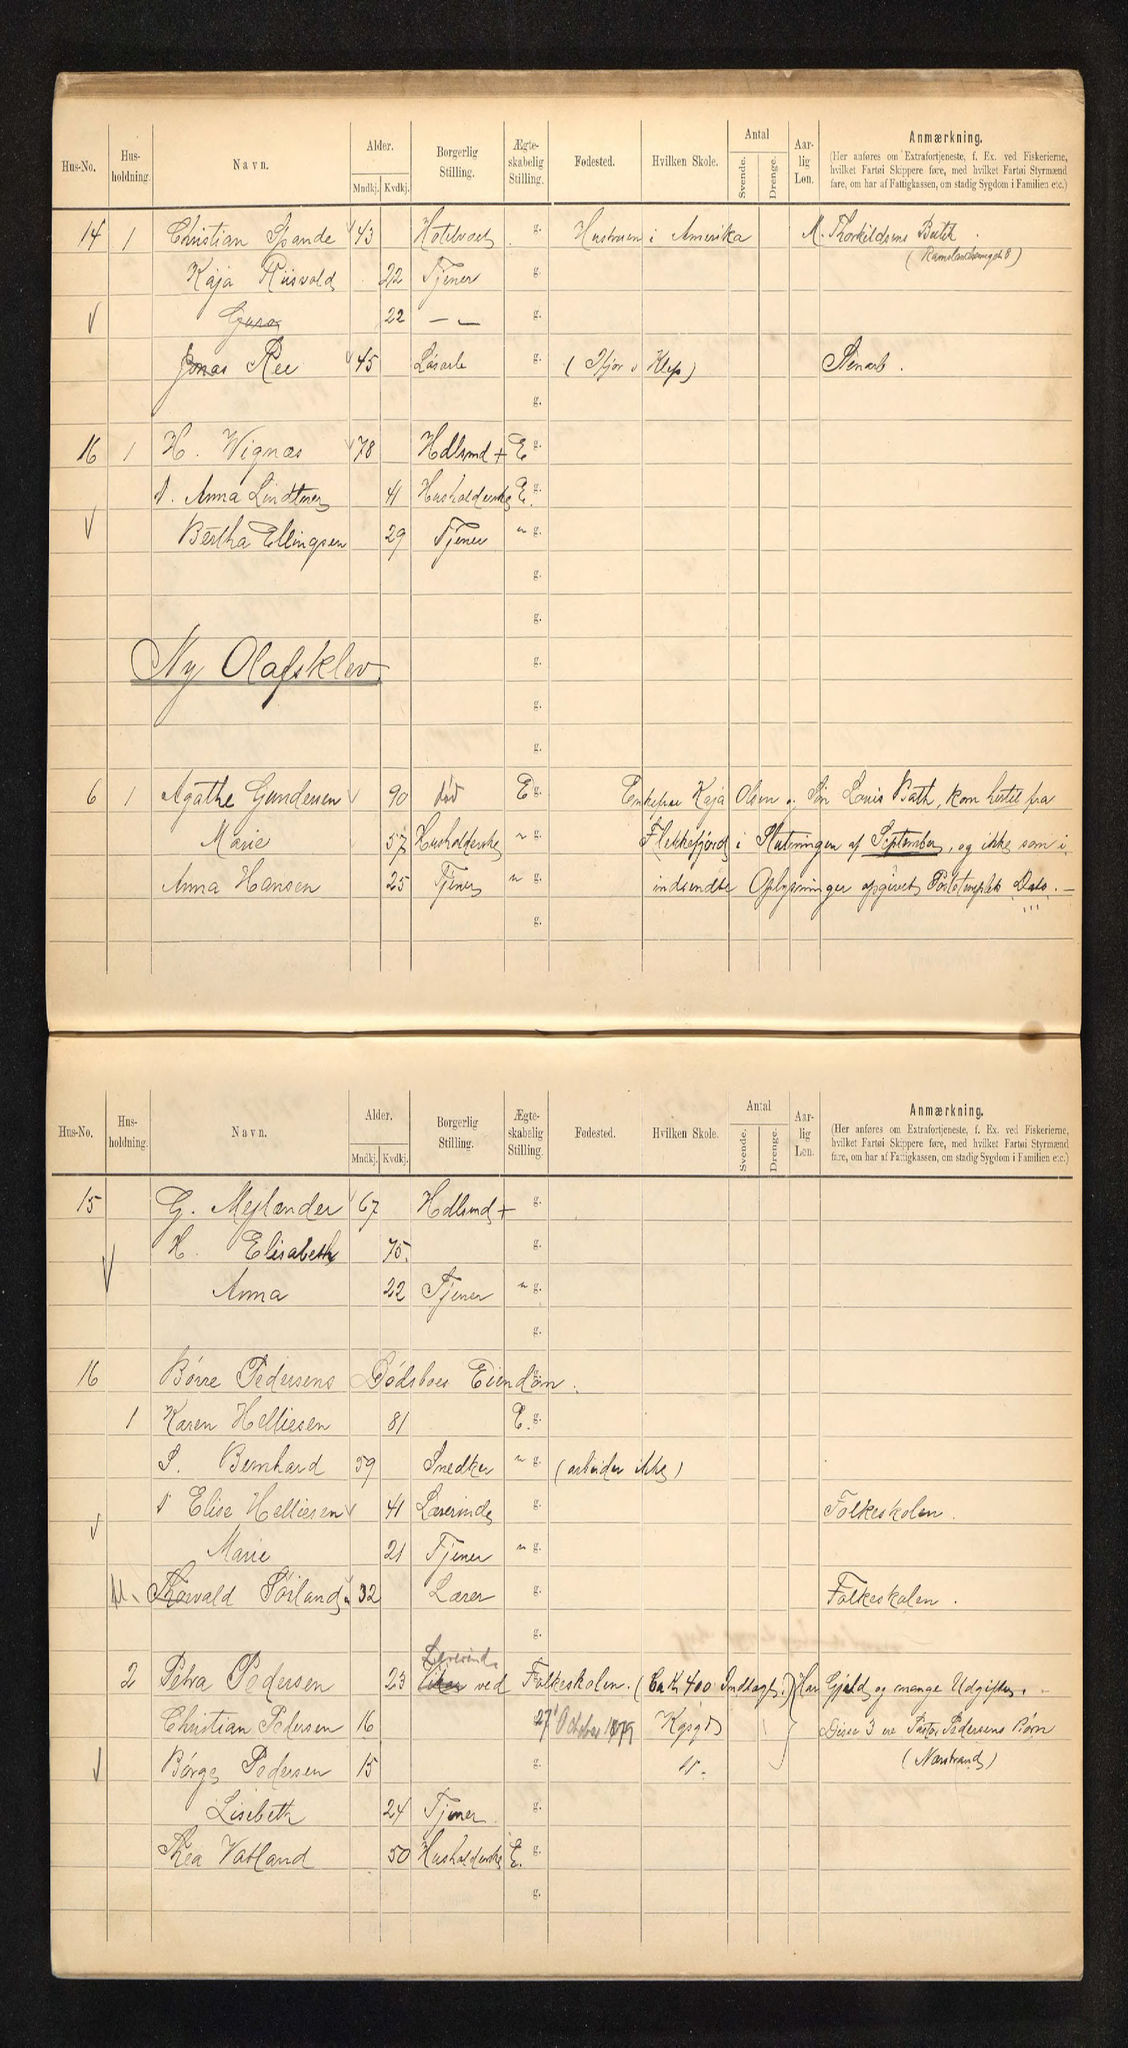 Hus-No. Hus-holdning. Navn. Alder. Mndkj. Kvdkj. Borgerlig Stilling. Ægte-skabelig Stilling. Fødested. Hvilken Skole. Antal Svende. Drenge. Aar-lig Løn. Anmærkning.
(Her anføres om Extrafortjeneste, f. Ex. ved Fiskerierne,
hvilket Fartøi Skippere føre, med hvilket Fartøi Styrmænd
fare, om har af Fattigkassen, om stadig Sygdom i Familien etc.)
14 1 Christian Spande 43 Hotelvært g. Hustruen i Amerika M. Thorkildsens Butik
Kaja Riisvold 22 Tjener g. (Ramslandsmgt 8)
Gura 22 — — g.
Jonas Ree 45 Løsarb g. (Ifjor i Klep) Stenarb.
g.
16 1 H. Wignæs 78 Hdlsmd + E g.
d. Anna Lindtner 41 Husholderske E. g.
Bertha Ellingsen 29 Tjener u g.
g.
g.
Ny Olafsklev g.
g.
g.
6 1 Agathe Gundersen 90 død E g. Enkefrue Kaja Olsen og Søn Louis Bath, kom hertil fra
Marie 57 Husholderske u g. Flekkefjord i Slutningen af September, og ikke som i
Anna Hansen 25 Tjener u g. indsendte Oplysninger opgivet Poststemplets Dato. —
g.
Hus-No. Hus-holdning. Navn. Alder. Mndkj. Kvdkj. Borgerlig Stilling. Ægte-skabelig Stilling. Fødested. Hvilken Skole. Antal Svende. Drenge. Aar-lig Løn. Anmærkning.
(Her anføres om Extrafortjeneste, f. Ex. ved Fiskerierne,
hvilket Fartøi Skippere føre, med hvilket Fartøi Styrmænd
fare, om har af Fattigkassen, om stadig Sygdom i Familien etc.)
15 G. Mejlænder 67 Hdlsmd + g.
H. Elisabeth 75. g.
Anna 22 Tjener u g.
g.
16 Børre Pedersens Dødsboes Eiendom. g.
1 Karen Helliesen 81 E. g.
S. Bernhard 59 Snedker u g. (arbeider ikke)
d Elise Helliesen 41 Lærerinde g. Folkeskolen.
Marie 21 Tjener u g.
Thorvald Sørland 32 Lærer g. Folkeskolen.
g.
Lærerinde
2 Petra Pedersen 23 ved Folkeskolen. (Ca Kr 400 Indtægt.) Har Gjæld og mange Udgifter.
Christian Pedersen 16 27' October 1879 Kgsgd Disse 3 ere Pastor Pedersens Børn
Børge Pedersen 15 g. (Nærstrand)
Lisebeth 24 Tjener g.
Thea Vatland 50 Husholderske E. g.
g.